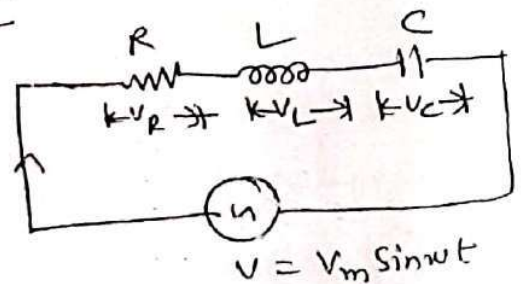 R L C
V_R V_L V_C
V = V_m Sinωt